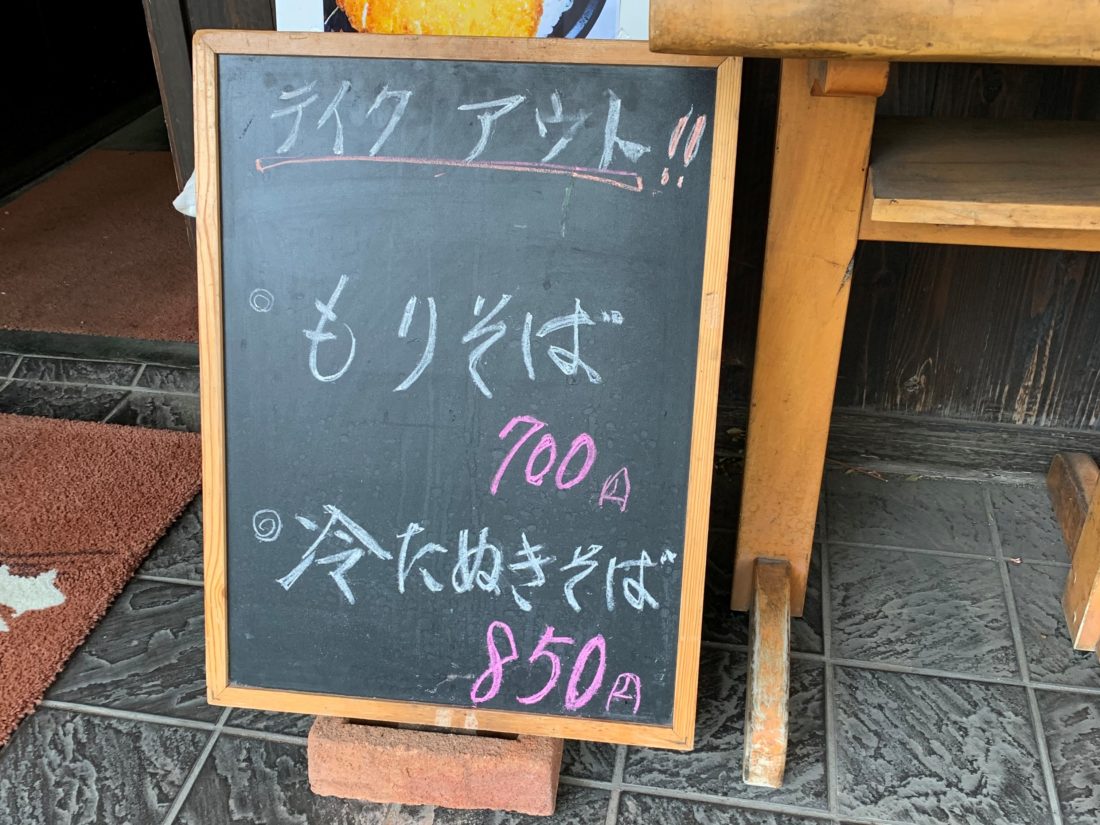 テイクアウト!!
◎もりそば
700円
◎冷たぬきそば
850円